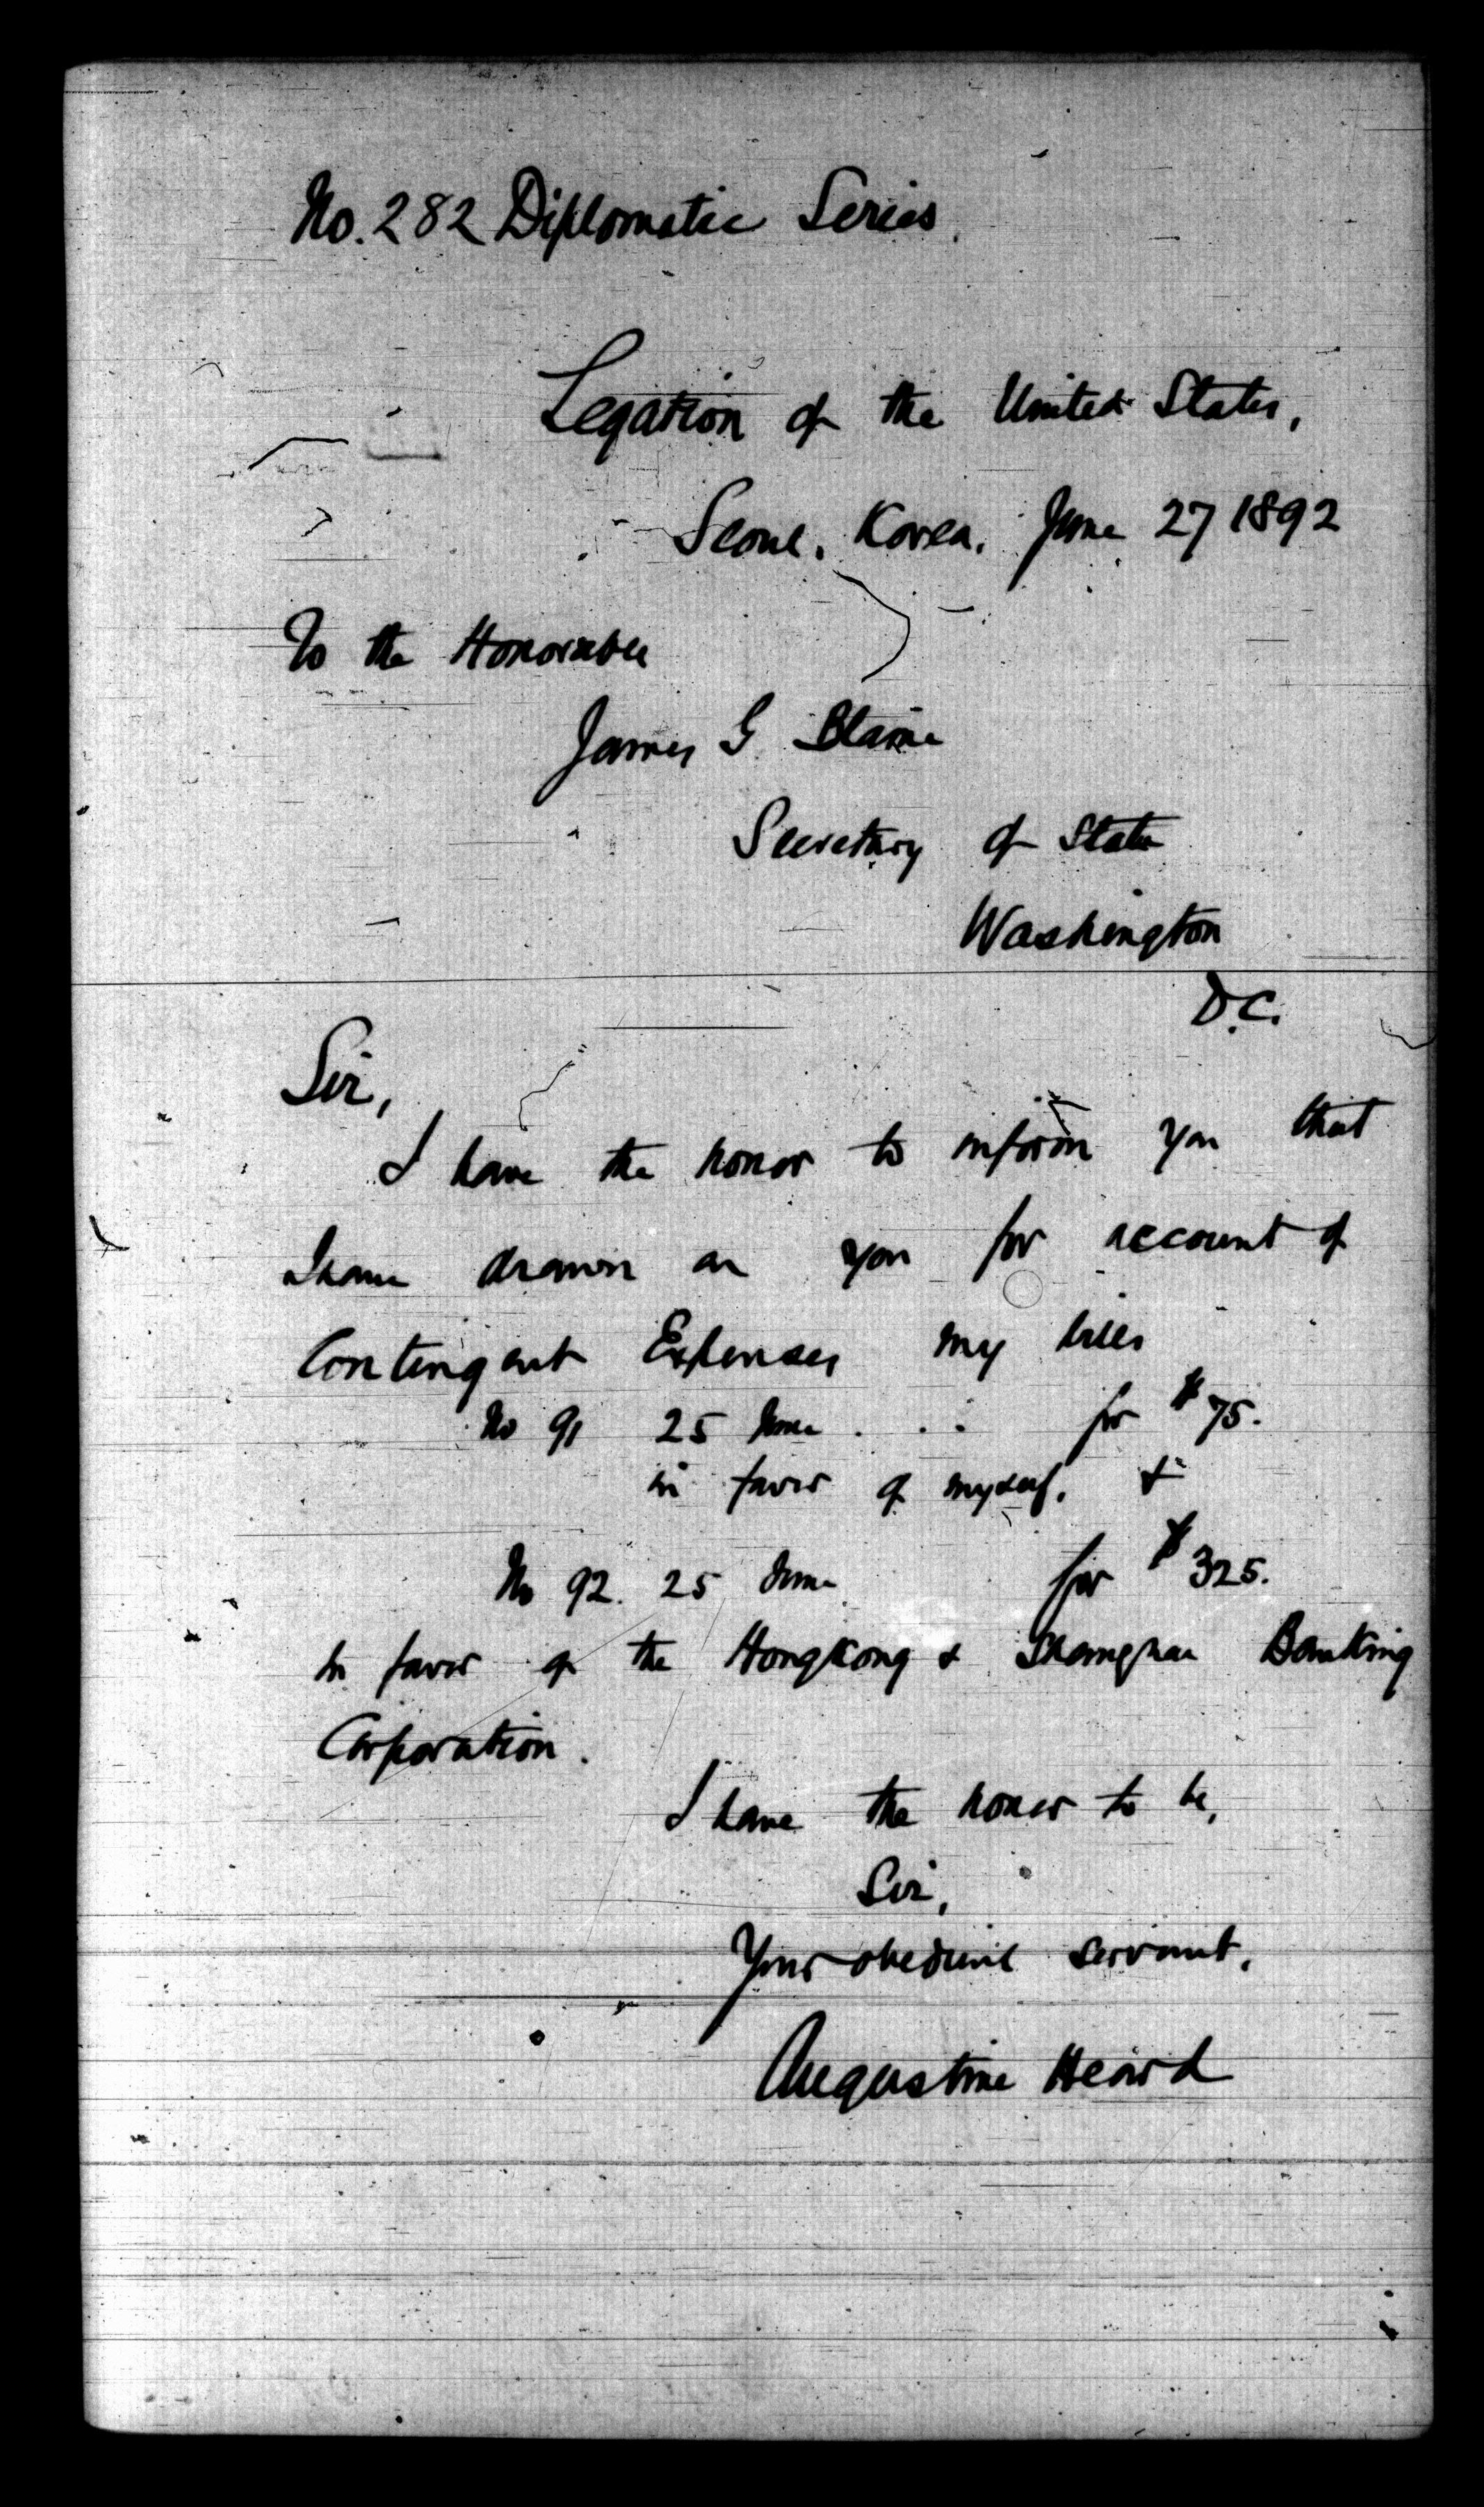 No. 282 Diplomatic Series.
Legation of the United States,
Seoul, Korea, June 27 1892
To the Honorable
James G. Blaine
Secretary of State
Washington
D.C.
Sir,
I have the honor to inform you that
I have drawn on you for account of
Contingent Expenses my bills
No 91 25 June . . . for $75.
in favor of myself, &
No 92. 25 June for $325.
in favor of the HongKong & Shanghai Banking
Corporation.
I have the honor to be,
Sir,
Your obedient servant,
Augustine Heard